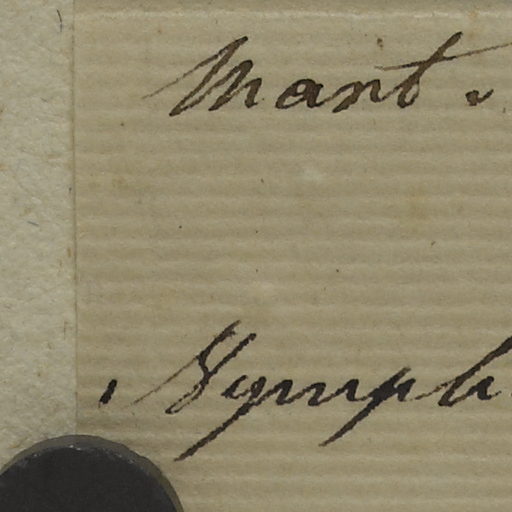 Mant.
Nymph